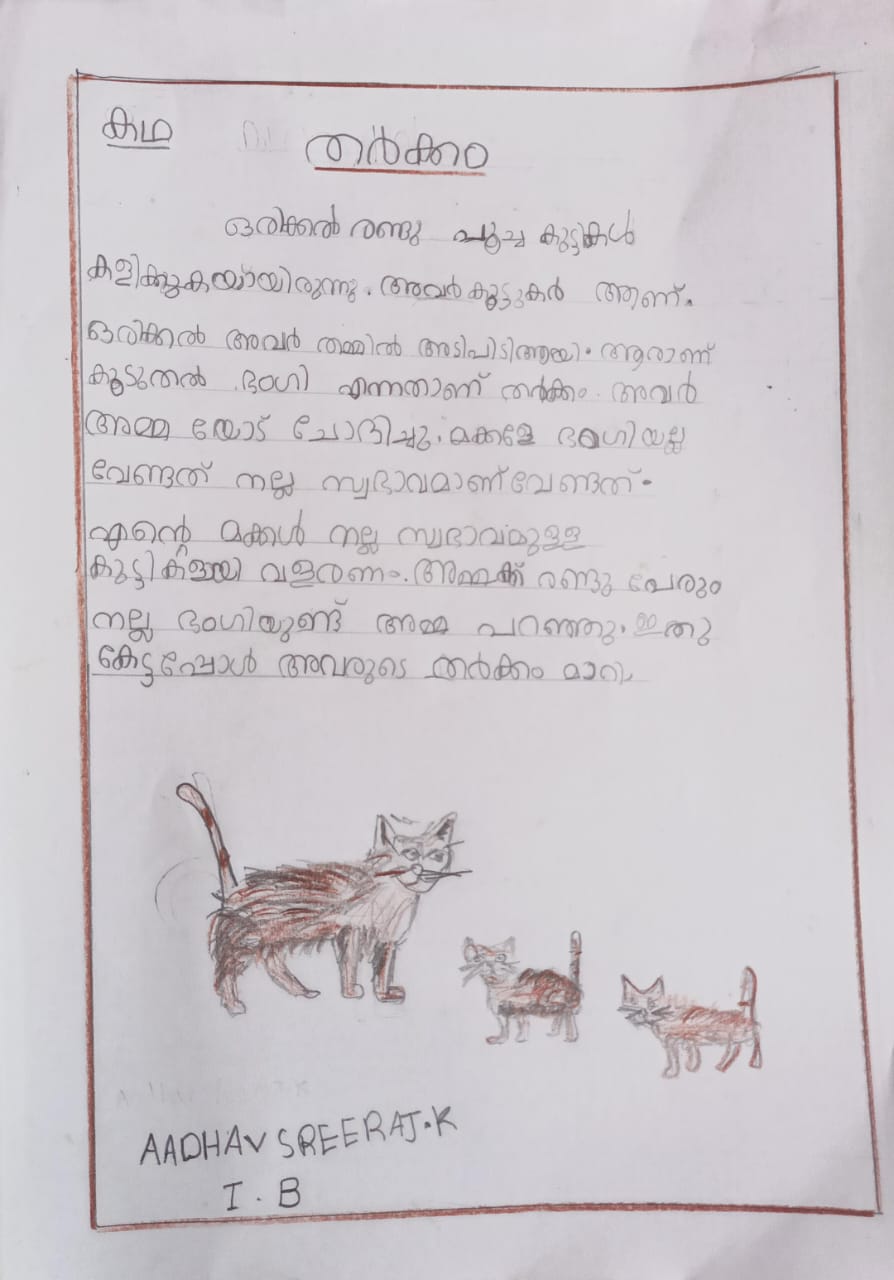 കഥ
തർക്കം
ഒരിക്കൽ രണ്ടു പൂച്ച കുട്ടികൾ
കളിക്കുകയായിരുന്നു. അവർ കൂട്ടുകർ ആണ്.
ഒരിക്കൽ അവർ തമ്മിൽ അടിപിടിആയി. ആരാണ്
കൂടുതൽ ഭംഗി എന്നതാണ് തർക്കം. അവർ
അമ്മ യോട് ചോദിച്ചു. മക്കളേ ഭംഗിയല്ല
വേണ്ടത് നല്ല സ്വഭാവമാണ് വേണ്ടത്.
എന്റെ മക്കൾ നല്ല സ്വഭാവമുള്ള
കുട്ടികളായി വളരണം. അമ്മക്ക് രണ്ടു പേരും
നല്ല ഭംഗിയുണ്ട് അമ്മ പറഞ്ഞു. ഇതു
കേട്ടപ്പോൾ അവരുടെ തർക്കം മാറി.
AADHAV SREERAJ.K
I. B